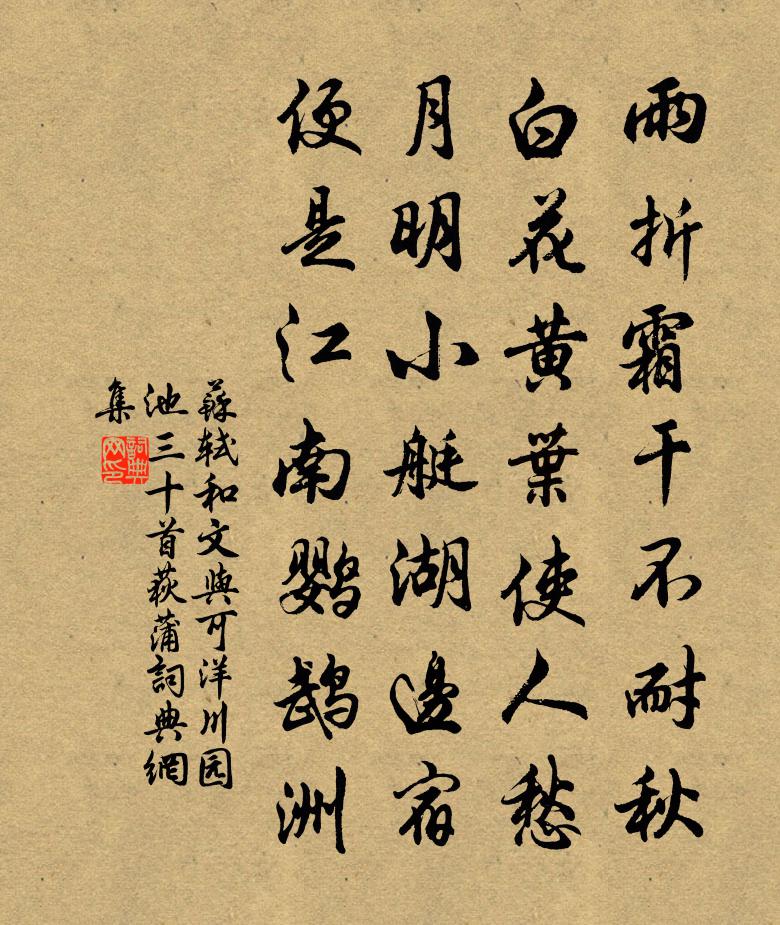 雨折霜干不耐秋
白花黄葉使人愁
月明小艇湖邊宿
便是江南鹦鹉洲
蘇軾和文與可洋川园
池三十首荻蒲詞典網
集
詞典网印